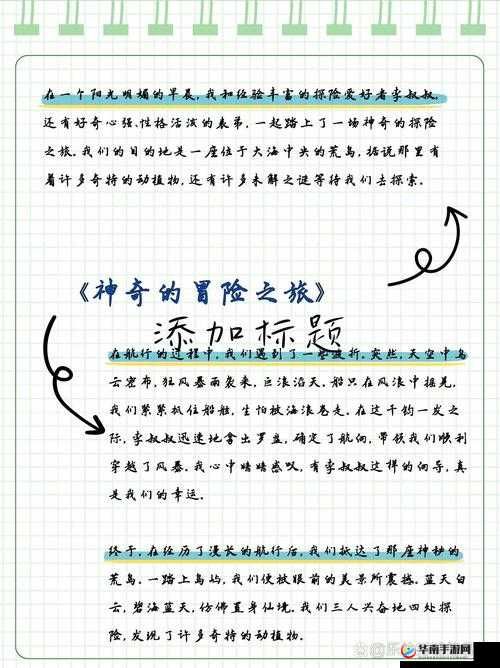 在一个阳光明媚的早晨,我和经验丰富的探险爱好者李叔叔,
还有好奇心强、性格活泼的表弟,一起踏上了一场神奇的探险
之旅。我们的目的地是一座位于大海中央的荒岛,据说那里有
着许多奇特的动植物,还有许多未解之谜等待我们去探索。
《神奇的冒险之旅》
添加标题
在航行的过程中,我们遇到了一些波折。突然,天空中乌
云密布,狂风暴雨袭来,巨浪滔天,船只在风浪中摇晃,
我们紧紧抓住船舷,生怕被海浪卷走。在这千钧一发之
际,李叔叔迅速地拿出罗盘,确定了航向,带领我们顺利
穿越了风暴。我心中暗暗感叹,有李叔叔这样的向导,真
是我们的幸运。
终于,在经历了漫长的航行后,我们抵达了那座神秘的
荒岛。一踏上岛屿,我们便被眼前的美景所震撼。蓝天白
云,碧海蓝天,仿佛置身仙境。我们三人兴奋地四处探
险,发现了许多奇特的动植物。
华南手游网